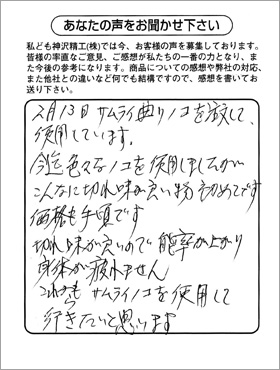 あなたの声をお聞かせ下さい
私ども神沢精工(株)では今、お客様の声を募集しております。
皆様の率直なご意見、ご感想が私たちの一番の力となり、ま
た今後の参考になります。商品についての感想や弊社の対応、
また他社との違いなど何でも結構ですので、感想を書いてお
送り下さい。
2月13日 サムライ曲りノコを
使用しています。
今迄色々なノコを使用しましたが
こんなに切れ味が良い物初めてです
価格も手頃です
切れ味が良いので能率が上がり
身体が疲れません
これからも サムライノコを使用して
行きたいと思います